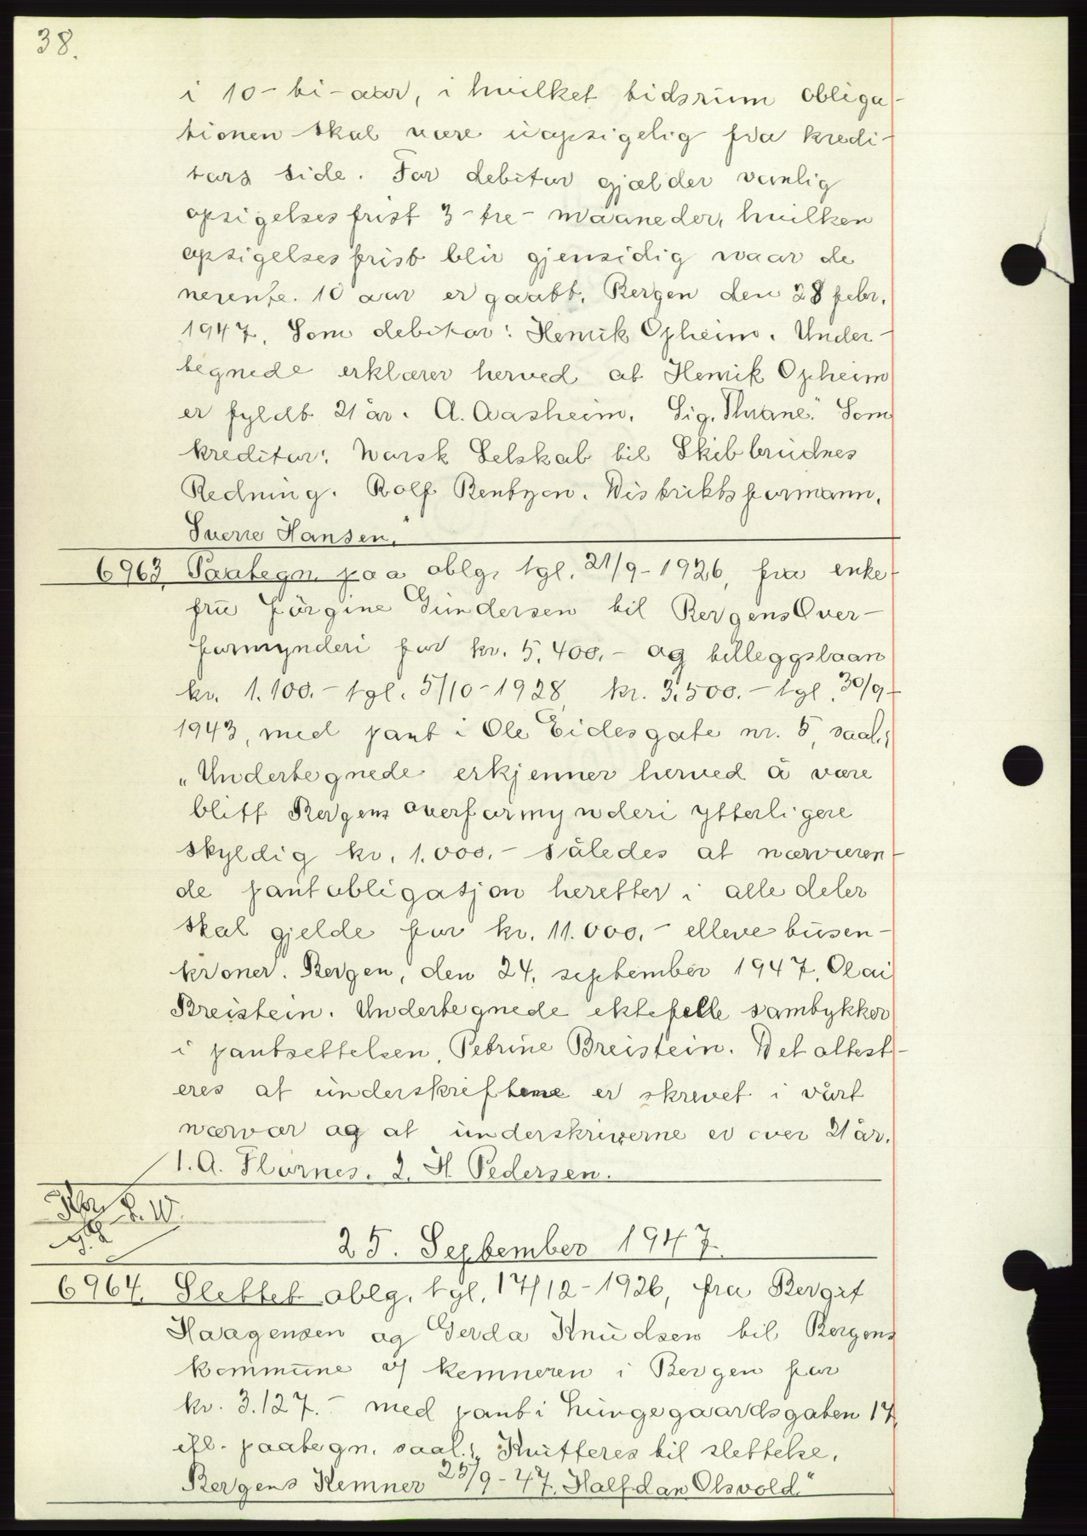 38.
i 10 - ti - aar, i hvilket tidsrum obliga-
tionen skal være uopsigelig fra kredi-
tors side. For debitor gjælder vanlig
opsigelsesfrist 3 - tre - maaneder, hvilken
opsigelsesfrist blir gjensidig naar de
nevente 10 aar er gaatt. Bergen den 28 febr.
1947. Som debitor: Henrik Opheim. Under-
tegnede erklærer herved at Henrik Opheim
er fyldt 21 år. A. Aasheim. Sig. Thrane." Som
kreditor: Norsk Selskab til Skibbrudnes
Redning. Rolf Bentzon. Distriktsformann.
Sverre Hansen."
6963. Paategn. paa oblg. tgl. 21/9-1926, fra enke-
fru Jörgine Gundersen til Bergens Over-
formynderi for kr. 5.400.- og tilleggslaan
kr. 1.100.- tgl. 5/10-1928, kr. 3.500.- tgl. 30/9-
1943, med pant i Ole Eidesgate nr. 5, saal.:
„Undertegnede erkjenner herved å være
blitt Bergens overformynderi ytterligere
skyldig kr. 1.000.- således at nærværen-
de pantobligasjon heretter i alle deler
skal gjelde for kr. 11.000.- elleve tusen-
kroner. Bergen, den 24. september 1947. Olai
Breistein. Undertegnede ektefelle samtykker
i pantsettelsen, Petrine Breistein. Det attest-
eres at underskriftene er skrevet i vårt
nærvær og at underskriverne er over 21 år.
1. A. Flornes. 2. H. Pedersen.
25. September 1947.
6964. Slettet oblg. tgl. 17/12-1926, fra Bergit
Haagensen og Gerda Knudsen til Bergens
kommune v/ kemneren i Bergen for
kr. 3.127.- med pant i Lungegaardsgaten 17
ifl. paategn. saal.: Kvitteres til slettelse.
Bergens Kemner 25/9-47. Halfdan Olsvold"